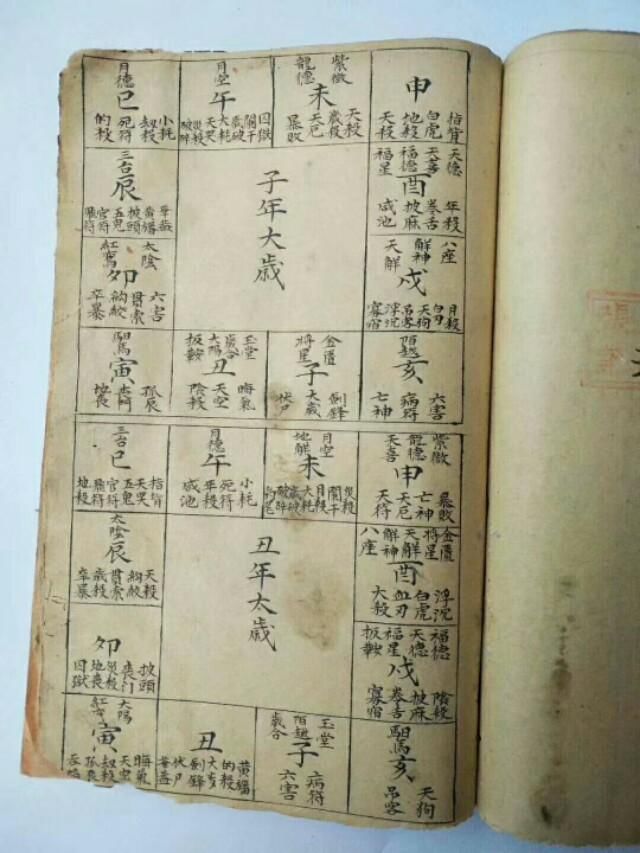 月德
巳
小耗
劫殺
死符
的殺
月空
午
囚獄
闌干
歲破
大耗
天哭
災殺
破碎
紫微
龍德
未
天殺
歲殺
天厄
暴敗
申
指背
白虎
地殺
天殺
三台
辰
華蓋
黃旛
披頭
五鬼
官符
飛符
子年大歲
天德
天喜
福德
福星
酉
年殺
卷舌
披麻
咸池
太陰
紅鸞
卯
六害
貫索
勾絞
卒暴
八座
解神
天解
戌
月殺
白刃
天狗
吊客
浮沉
寡宿
馹馬
寅
孤辰
喪門
地喪
玉堂
歲合
太陽
板鞍
丑
晦氣
天空
陰殺
金匱
將星
子
劍鋒
大歲
伏尸
陌越
亥
六害
病符
亡神
三台
巳
指背
天哭
五鬼
官符
飛符
地殺
月德
午
小耗
死符
年殺
咸池
月空
地解
未
災殺
闌干
月殺
大耗
歲破
破碎
紫微
龍德
天喜
申
暴敗
亡神
天厄
天符
太陰
辰
天殺
勾絞
貫索
歲殺
卒暴
丑年太歲
金匱
將星
天解
解神
八座
酉
浮沉
白虎
血刃
大殺
卯
披頭
喪門
災殺
地喪
囚獄
福德
天德
福星
板鞍
戌
陰殺
披麻
卷舌
寡宿
太陽
寅
晦氣
天空
劫殺
孤辰
丑
黃旛
的殺
大歲
劍鋒
伏尸
華蓋
玉堂
陌越
歲合
子
病符
六害
馹馬
亥
天狗
吊客